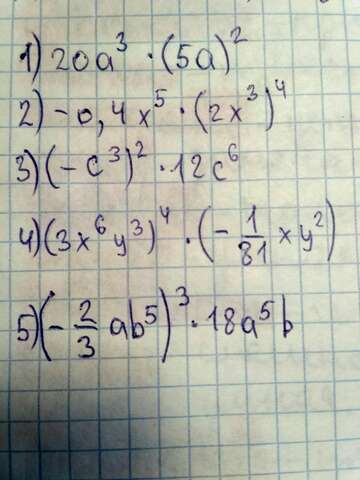 1) 20a³ · (5a)²
2) -0,4x⁵ · (2x³)⁴
3) (-c³)² · 12c⁶
4) (3x⁶y³)⁴ · (-1/81 xy²)
5) (-2/3 ab⁵)³ · 18a⁵b